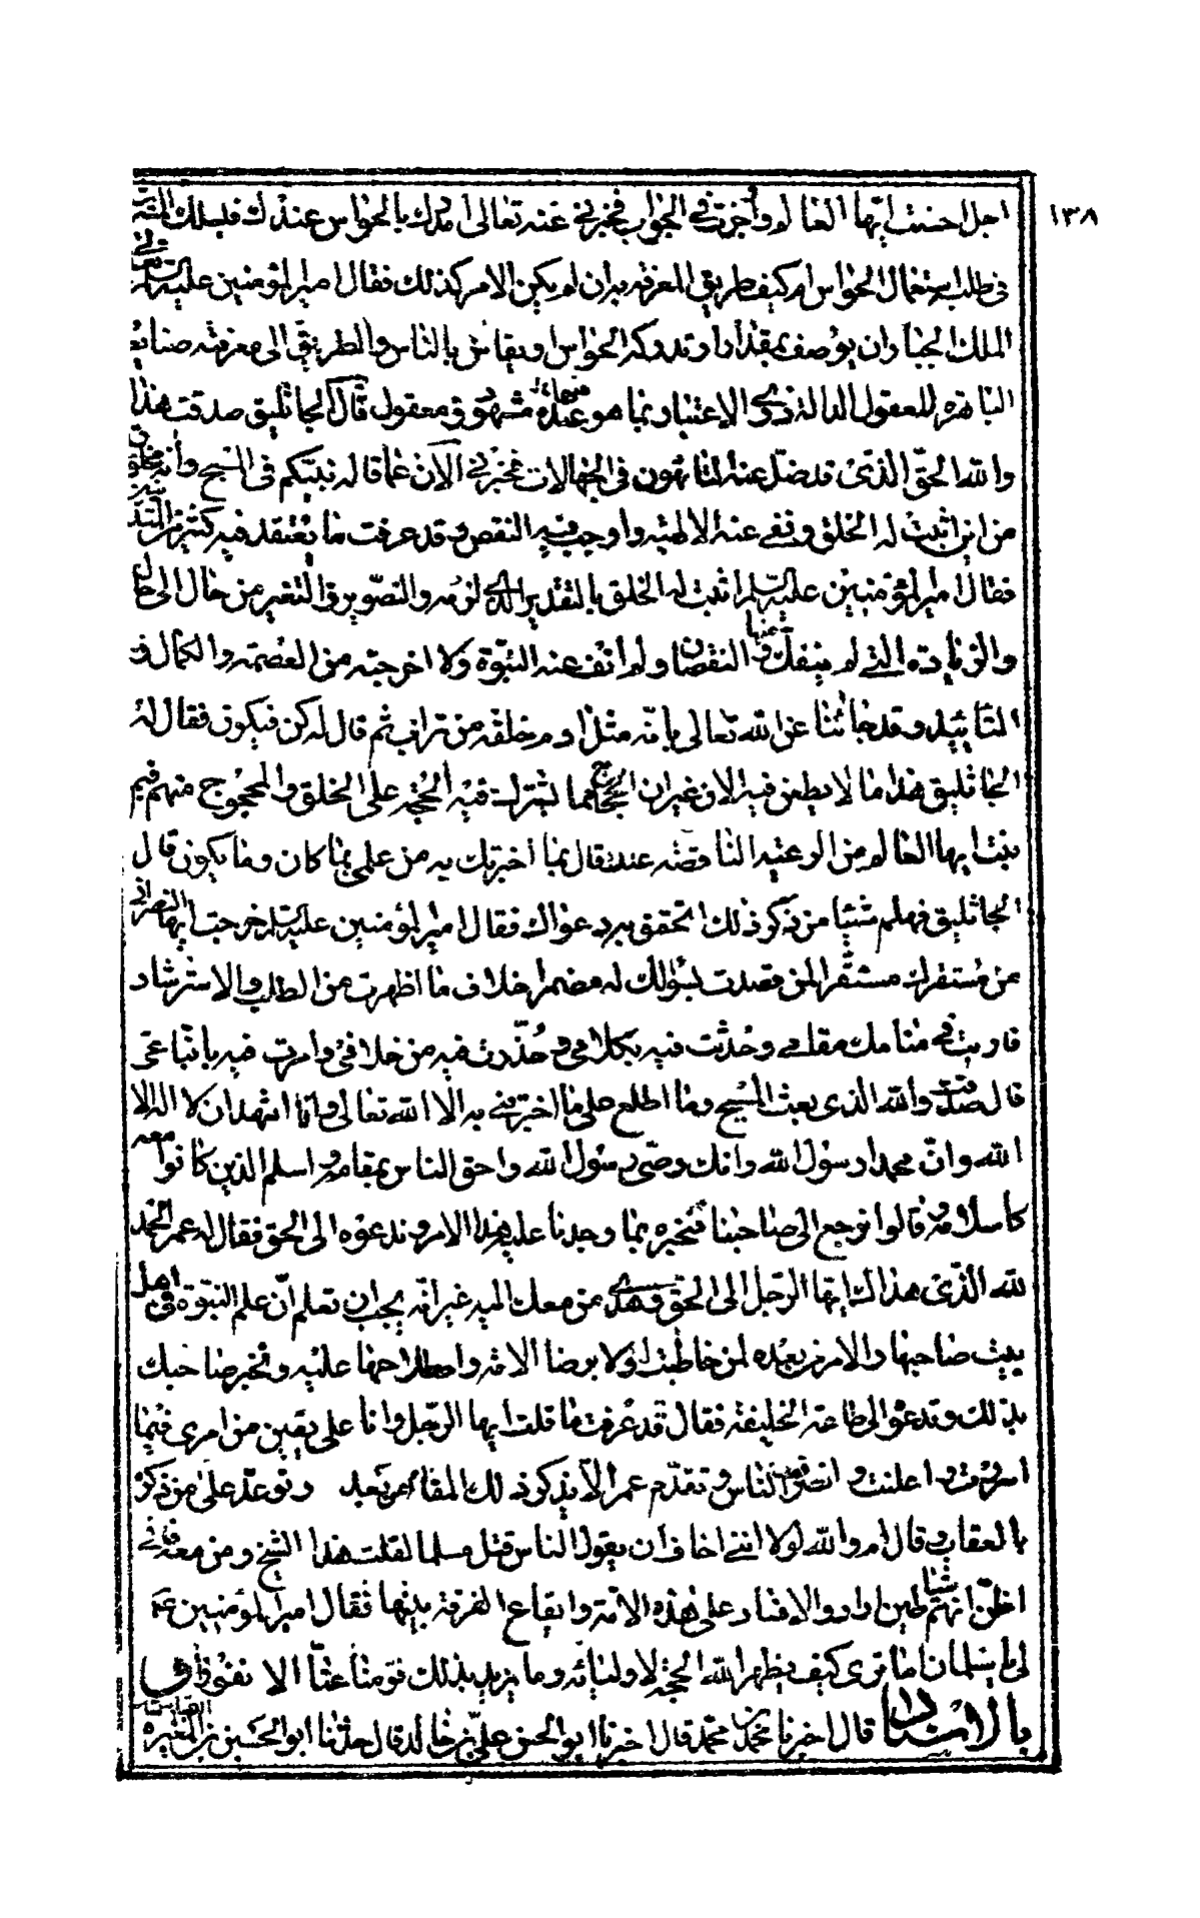 ١٣٨
اجل احسنت ايّها العالم واوجزت في الجواب فخبرني عنه تعالى امدرك بالحواس عندك فيسلك المسترشد
في طلبه استعمال الحواس ام كيف طريق المعرفة به ان لم يكن الامر كذلك فقال امير المؤمنين عليه السلم تعالى
الملك الجبار ان يوصف بمقدار او تدركه الحواس او يقاس بالناس والطريق الى معرفته صنايعه
الباهرة للعقول الدالة ذوي الاعتبار بما هو عنده منها مشهود ومعقول قال الجاثليق صدقت هذا
والله الحقّ الذي قد ضلّ عنه التائهون في الجهالات فخبرني الآن عما قاله نبيّكم في المسيح وأنه مخلوق
من اين اثبت له الخلق ونفى عنه الالهية واوجب فيه النقص وقد عرفت ما يعتقد فيه كثير من المتدينين
فقال امير المؤمنين عليه السلم اثبت له الخلق بالتقدير الذي لزمه والتصوير والتغير من حال الى حال
والزيادة التي لم ينفك منها والنقصان ولم أنف عنه النبوّة ولا اخرجته من العصمة والكمال و
التأييد وقد جائنا عن الله تعالى بانّه مثل ادم خلقه من تراب ثم قال له كن فيكون فقال له
الجاثليق هذا ما لا يطعن فيه الان غير ان الحجاج مما يشترك فيه الحجّة على الخلق والمحجوج منهم فبم
بنت ايها العالم من الرعيّة الناقصة عنده قال بما اخبرتك به من علمي بما كان وما يكون قال
الجاثليق فهلم شيئا من ذكر ذلك اتحقق به دعواك فقال امير المؤمنين عليه السلم خرجت ايها النصراني
من مستقرك مستفزا لمن قصدت بسؤالك له مضمرا خلاف ما اظهرت من الطلب والاسترشاد
فاريت في منامك مقامي وحدّثت فيه بكلامي وحذّرت فيه من خلافي وامرت فيه باتّباعي
قال صدقت والله الذي بعث المسيح وما اطلع على ما اخبرتني به الا الله تعالى وانا اشهد ان لا اله الا
الله وانّ محمدا رسول الله وانك وصيّ رسول الله واحق الناس بمقامه واسلم الذين كانوا معه
كاسلامه وقالوا نرجع الى صاحبنا فنخبره بما وجدنا عليه هذا الامر وندعوه الى الحق فقال له عمر الحمد
لله الذّي هداك ايّها الرّجل الى الحق وهدى من معك اليه غير انّه يجب ان تعلم انّ علم النبوّة في اهل
بيت صاحبها والامر من بعده لمن خاطبت اوّلا برضا الامّة واصطلاحها عليه وتخبر صاحبك
بذلك وتدعوه الى طاعة الخليفة فقال قد عرفت ما قلت ايها الرّجل وانا على يقين من امري فيما
اسررت واعلنت وانصرف الناس وتقدّم عمر الّا يذكر ذلك المقام من بعد وتوعّد على من ذكره
بالعقاب وقال ام والله لولا انني اخاف ان يقول الناس قتل مسلما لقتلت هذا الشيخ ومن معه فانّي
اظنّ انهم شياطين ارادوا الافساد على هذه الامّة وايقاع الفرقة بينها فقال امير المؤمنين ع
لي يا سلمان اما ترى كيف يظهر الله الحجّة لاوليائه وما يزيد بذلك قومنا عنّا الا نفورا و
بالاسناد قال اخبرنا محمد بن محمد قال اخبرنا ابو الحسن عليّ بن خالد قال حدثنا ابو الحسين العباس بن المغيرة